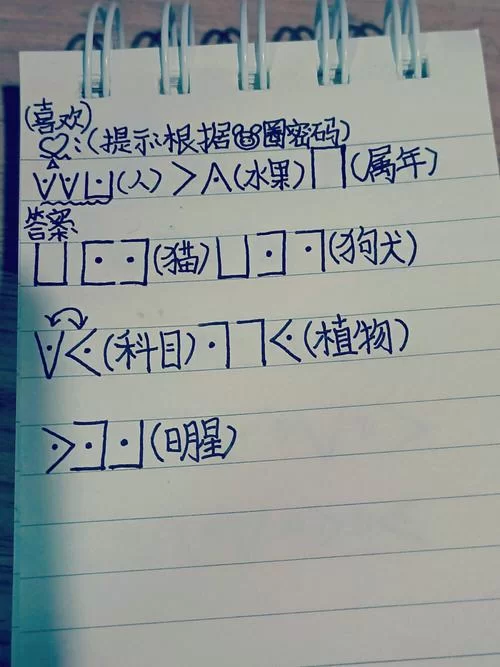 (喜欢)
♡:(提示:根据猪圈密码)
(人) (水果) (属年)
答案
(猫) (狗犬)
(科目) (植物)
(明星)